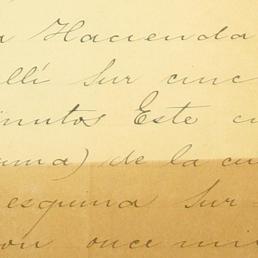 a Hacienda
allí Sur cinc
inutos Este cu
ama) de la cu
esquina Sur
on once mi